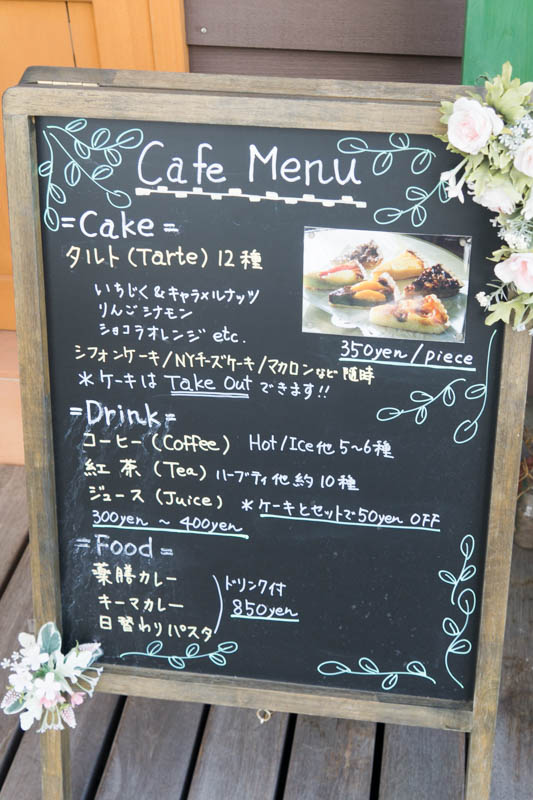 Cafe Menu
=Cake=
タルト(Tarte) 12種
いちじく&キャラメルナッツ
りんごシナモン
ショコラオレンジ etc.
350yen/piece
シフォンケーキ/NYチーズケーキ/マカロンなど随時
*ケーキは Take Out できます!!
=Drink=
コーヒー(Coffee) Hot/Ice他5~6種
紅茶(Tea) ハーブティ他約10種
ジュース(Juice) *ケーキとセットで50yen OFF
300yen ~ 400yen
=Food=
薬膳カレー
キーマカレー
日替わりパスタ
ドリンク付
850yen